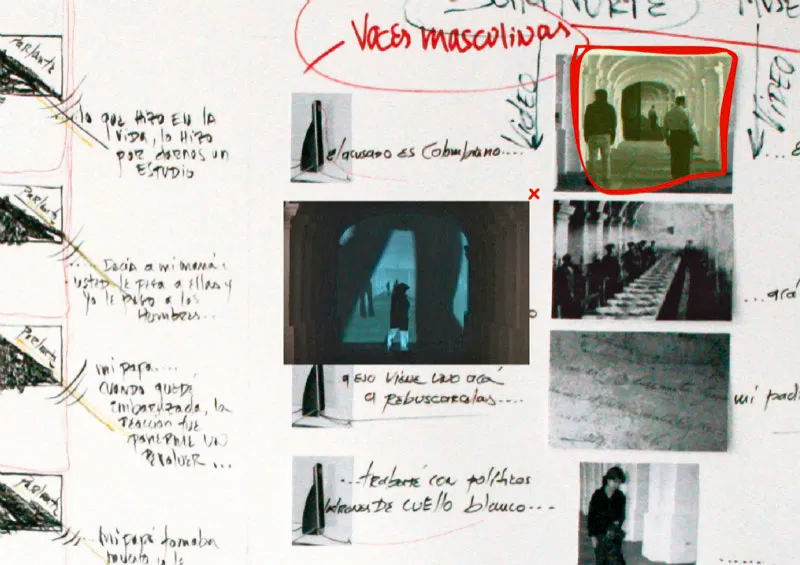 ZONA NORTE
VOCES masculinas
VIDEO
VIDEO
PARLANTE
lo que HIZO EN LA
VIDA, lo HIZO
por darnos un
ESTUDIO
el acusado es Colombiano....
PARLANTE
.... Decía a mi mamá:
usted le pega a ellas y
yo le pego a los
Hombres...
PARLANTE
mi papá....
CUANDO quedé
embarazada, la
reacción fue
ponerme UN
REVOLVER ...
VIENE UNO acá
a REBUSCARCELAS....
mi pad
PARLANTE
... trabajé con políticos
ladrones DE CUELLO blanco....
Mi papá tomaba